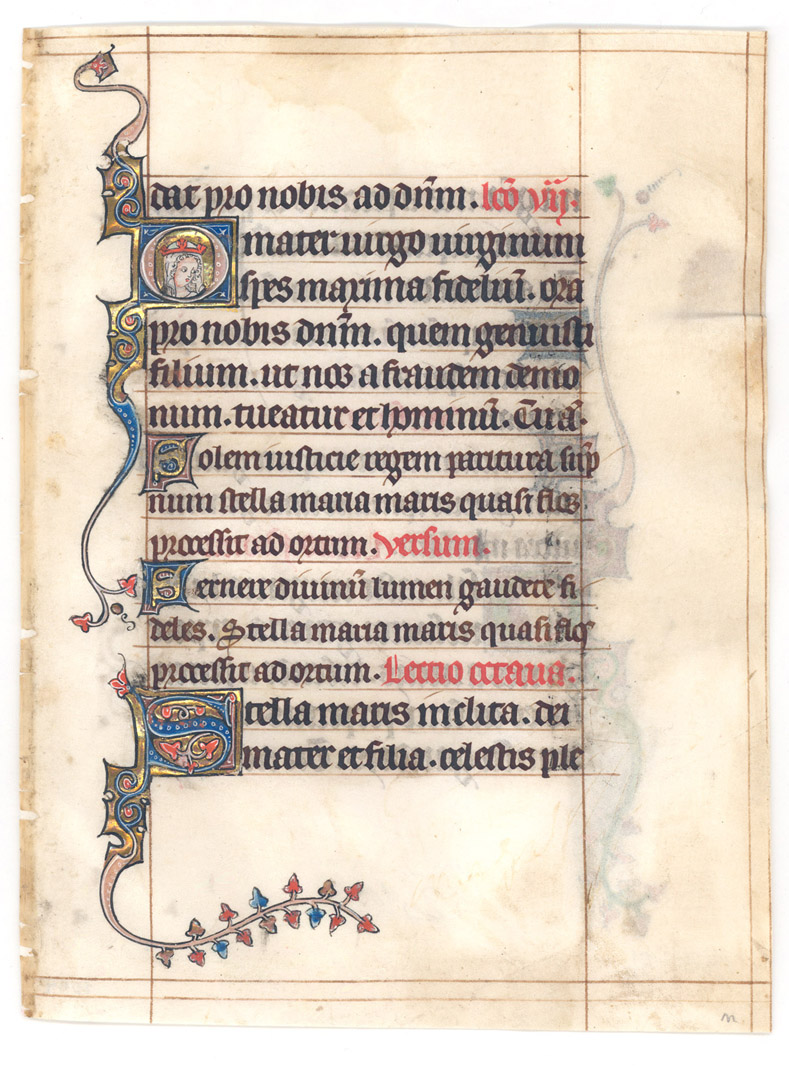 dat pro nobis ad dn̄m. lc̄o vij.
O mater uirgo uirginum
spes maxima fideliū. ora
pro nobis dn̄m. quem genuisti
filium. ut nos a fraudem demo
num. tueatur et hominū. Tu a.
Solem iusticie regem paritura sup
num stella maria maris quasi flos
processit ad ortum. versum.
Cernere diuinū lumen gaudete fi
deles. Stella maria maris quasi flos
processit ad ortum. Lectio octaua.
Stella maris inclita. dei
mater et filia. celestis ple